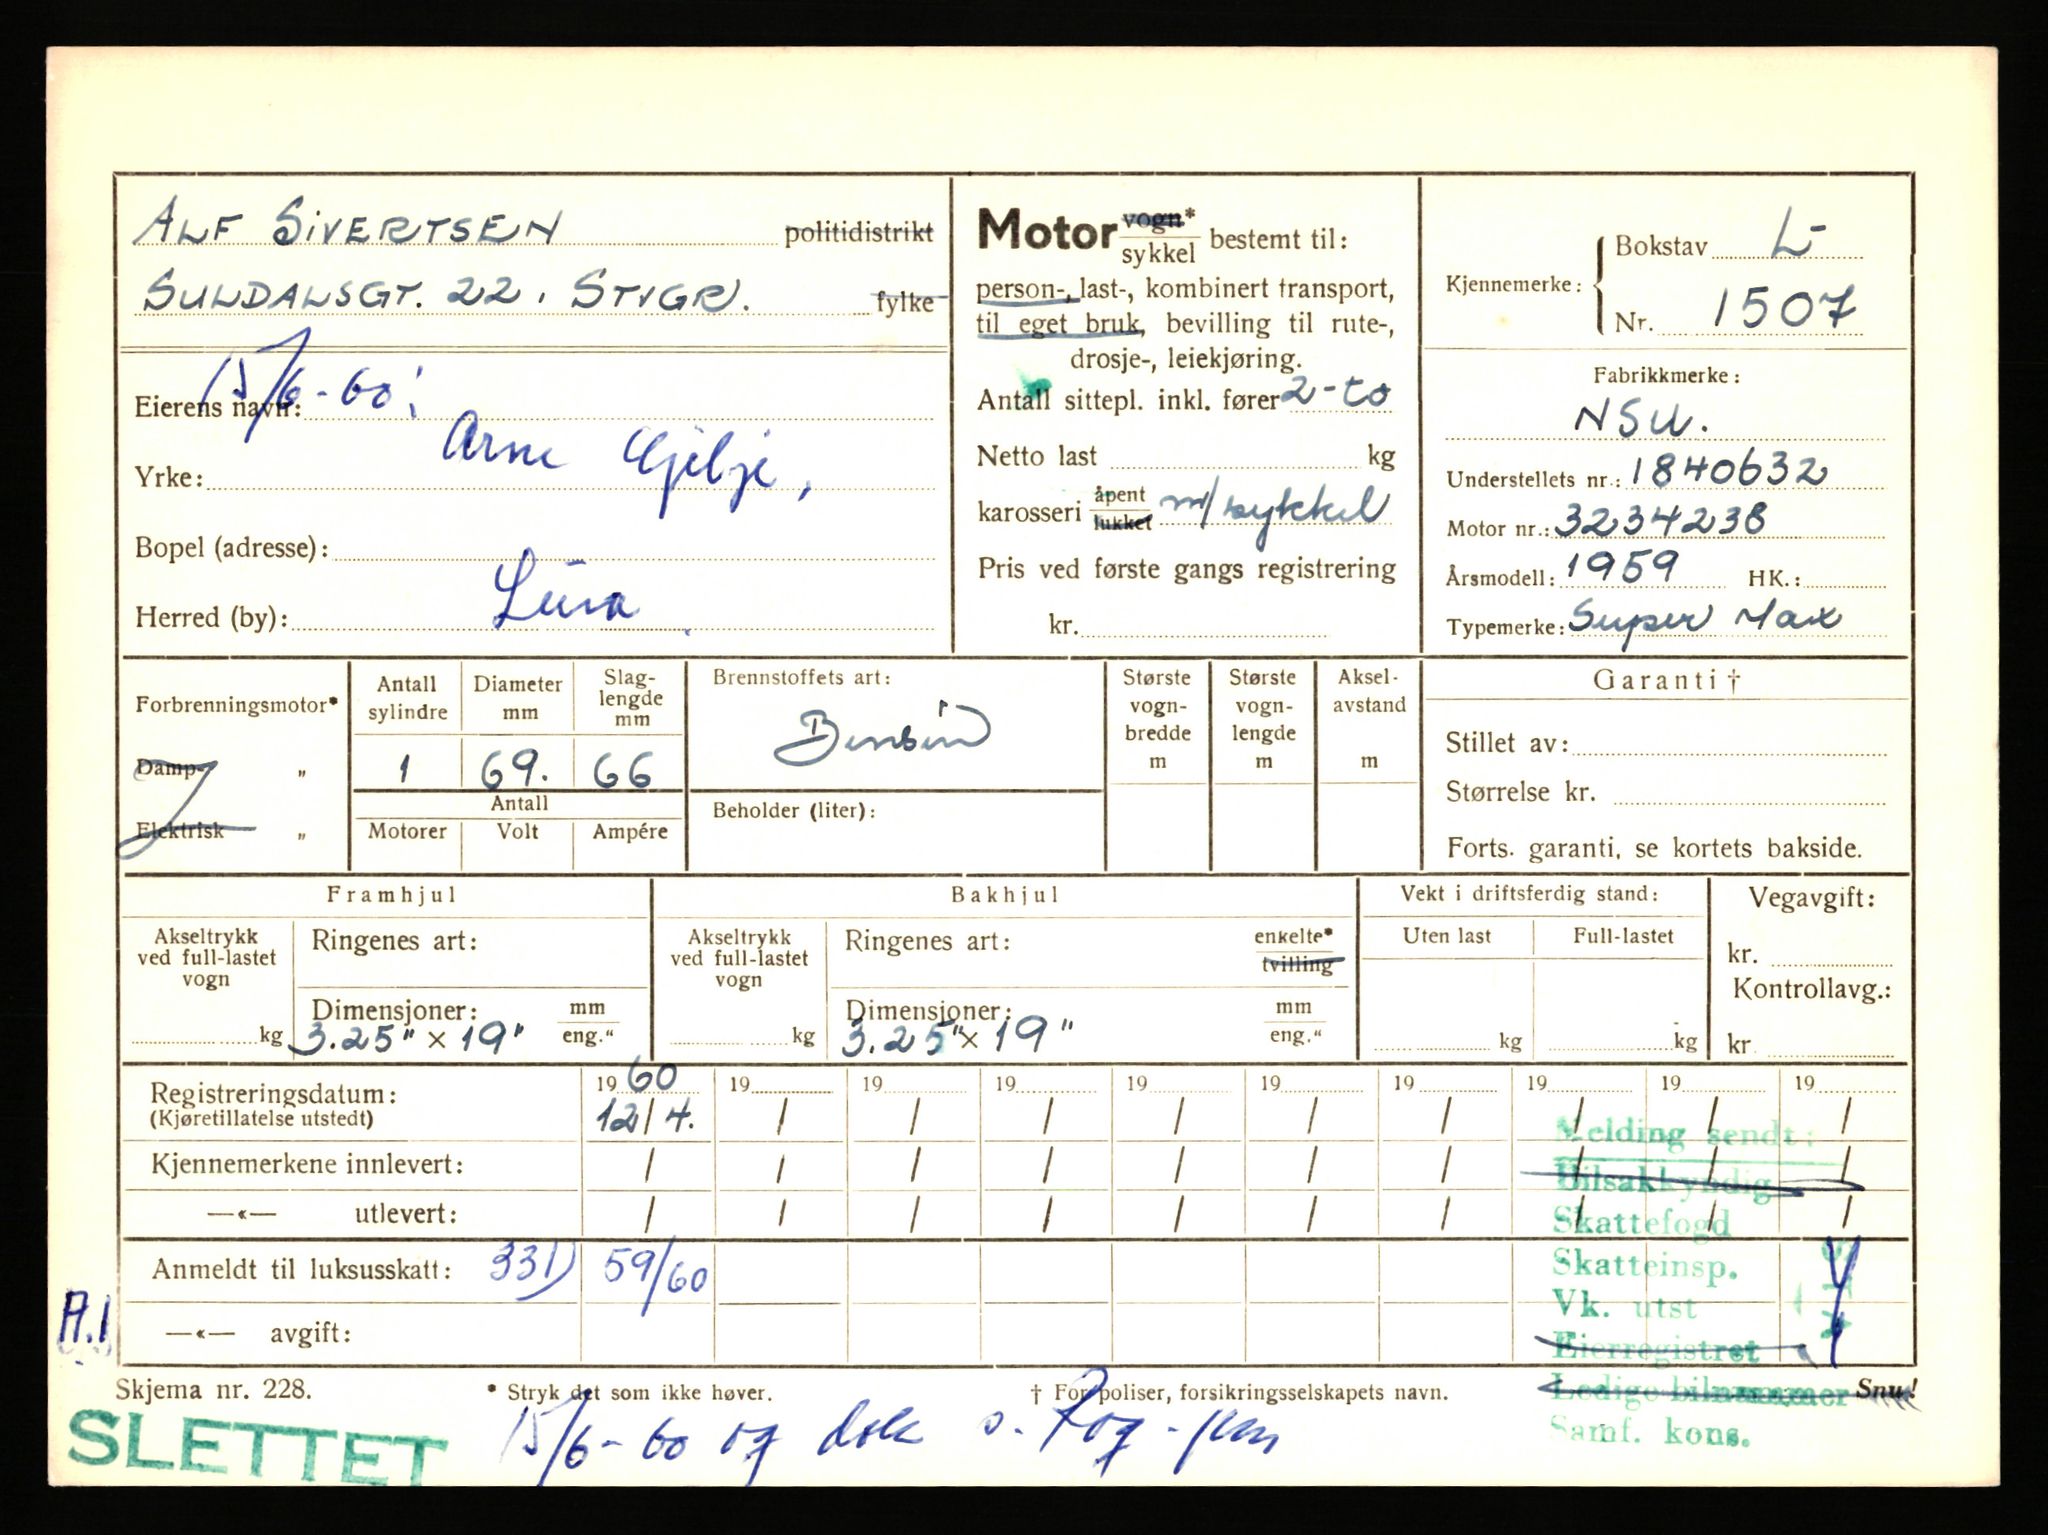 ALF SIVERTSEN politidistrikt
SULDALSGT. 22, STVGR. fylke
15/6-60:
Eierens navn:
Arne Gjilje,
Yrke:
Bopel (adresse):
Lura
Herred (by):
Motor vogn* sykkel bestemt til:
person-, last-, kombinert transport,
til eget bruk, bevilling til rute-,
drosje-, leiekjøring.
Antall sittepl. inkl. fører 2-to
Netto last kg
karosseri åpent lukket m/sykkel
Pris ved første gangs registrering
kr.
Kjennemerke: Bokstav L-
Nr. 1507
Fabrikkmerke:
NSU.
Understellets nr.: 1840632
Motor nr.: 3234238
Årsmodell: 1959 HK.:
Typemerke: Super Max
Forbrenningsmotor*
Damp- "
Elektrisk "
Antall sylindre
Diameter mm
Slag-lengde mm
1 69. 66
Antall
Motorer Volt Ampére
Brennstoffets art:
Bensin
Beholder (liter):
Største vogn-bredde m
Største vogn-lengde m
Aksel-avstand m
Garanti †
Stillet av:
Størrelse kr.
Forts. garanti, se kortets bakside.
Framhjul
Akseltrykk ved full-lastet vogn
kg
Ringenes art:
Dimensjoner: mm eng."
3.25" × 19"
Bakhjul
Akseltrykk ved full-lastet vogn
kg
Ringenes art: enkelte* tvilling
Dimensjoner: mm eng."
3.25" × 19"
Vekt i driftsferdig stand:
Uten last Full-lastet
kg kg
Vegavgift:
kr.
Kontrollavg.:
kr.
Registreringsdatum: 1960 19 19 19 19 19 19 19 19 19
(Kjøretillatelse utstedt) 12/4. / / / / / / / / /
Kjennemerkene innlevert: / / / / / / / / / /
—«— utlevert: / / / / / / / / / /
Anmeldt til luksusskatt: 331) 59/60
—«— avgift:
A.1
Melding sendt:
Bilsakkyndig
Skattefogd
Skatteinsp.
Vk. utst
Eierregistret
Ledige bilnummer
Samf. kons.
Skjema nr. 228. * Stryk det som ikke høver. † For poliser, forsikringsselskapets navn. Snu!
SLETTET
15/6-60 og dok s. Rog-